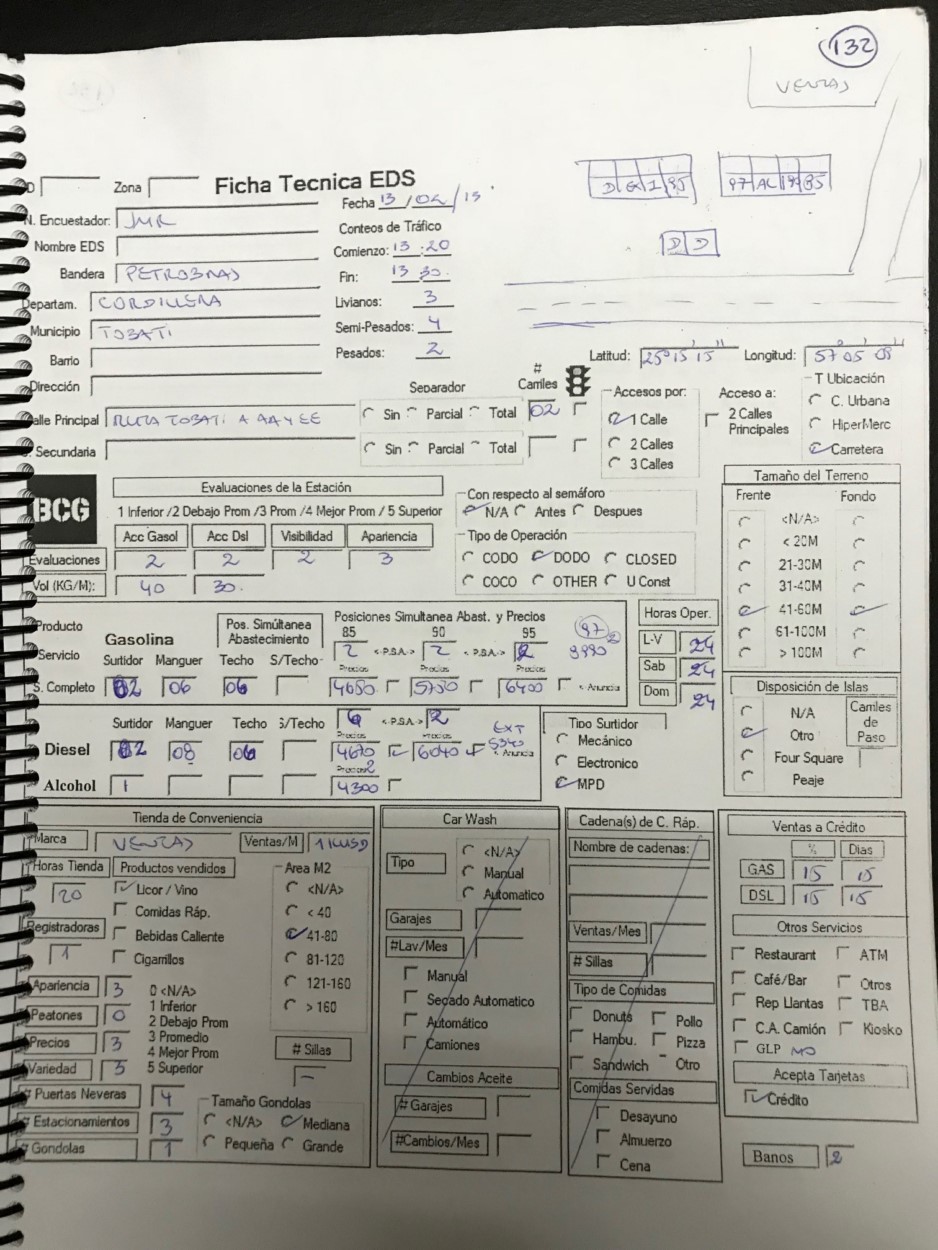 132
VENTAS
D EX 1 95
97 AL 1 95
D D
Zona
Ficha Tecnica EDS
Fecha 13/02/15
N. Encuestador: JMR
Nombre EDS
Bandera PETROBRAS
Departam. CORDILLERA
Municipio TOBATI
Barrio
Dirección
Calle Principal RUTA TOBATI A
Secundaria
Conteos de Tráfico
Comienzo: 13:20
Fin: 13 30
Livianos: 3
Semi-Pesados: 4
Pesados: 2
Latitud: 25° 15 15 Longitud: 57 05 08
Separador # Carriles
Sin Parcial Total 02
Sin Parcial Total
Accesos por:
1 Calle
2 Calles
3 Calles
Acceso a:
2 Calles
Principales
T Ubicación
C. Urbana
HiperMerc
Carretera
BCG
Evaluaciones de la Estación
1 Inferior /2 Debajo Prom /3 Prom /4 Mejor Prom / 5 Superior
Acc Gasol Acc Dsl Visibilidad Apariencia
Evaluaciones 2 2 2 3
Vol (KG/M): 40 30
Con respecto al semáforo
N/A Antes Despues
Tipo de Operación
CODO DODO CLOSED
COCO OTHER U Const
Tamaño del Terreno
Frente Fondo
<N/A>
< 20M
21-30M
31-40M
41-60M
61-100M
> 100M
Producto
Servicio
Gasolina
Pos. Simúltanea
Abastecimiento
Posiciones Simultanea Abast. y Precios
85 90 95 97
2 <-P.S.A.-> 2 <-P.S.A.-> 2
Surtidor Manguer Techo S/Techo
Precios Precios Precios
S. Completo 02 06 06 4650 6400 <- Anuncia
Surtidor Manguer Techo S/Techo
6 <-P.S.A.-> 2
Precios Precios EXT
Diesel 02 08 06 4670 6040 5340 <- Anuncia
Precios 2
Alcohol 1 4300
Horas Oper.
L-V 24
Sab 24
Dom 24
Tipo Surtidor
Mecánico
Electronico
MPD
Disposición de Islas
N/A
Otro
Four Square
Peaje
Carriles
de
Paso
Tienda de Conveniencia
Marca VENTAS Ventas/M
Horas Tienda 20
Productos vendidos
Licor / Vino
Comidas Ráp.
Bebidas Caliente
Cigarrillos
Registradoras 1
Area M2
<N/A>
< 40
41-80
81-120
121-160
> 160
Apariencia 3
Peatones 0
Precios 3
Variedad 3
0 <N/A>
1 Inferior
2 Debajo Prom
3 Promedio
4 Mejor Prom
5 Superior
# Sillas -
# Puertas Neveras 4
# Estacionamientos 3
# Gondolas 1
Tamaño Gondolas
<N/A> Mediana
Pequeña Grande
Car Wash
Tipo
<N/A>
Manual
Automatico
Garajes
#Lav/Mes
Manual
Secado Automatico
Automático
Camiones
Cambios Aceite
# Garajes
#Cambios/Mes
Cadena(s) de C. Ráp.
Nombre de cadenas:
Ventas/Mes
# Sillas
Tipo de Comidas
Donuts Pollo
Hambu. Pizza
Sandwich Otro
Comidas Servidas
Desayuno
Almuerzo
Cena
Ventas a Crédito
% Dias
GAS 15 15
DSL 15 15
Otros Servicios
Restaurant ATM
Café/Bar Otros
Rep Llantas TBA
C.A. Camión Kiosko
GLP NO
Acepta Tarjetas
Crédito
Banos 2